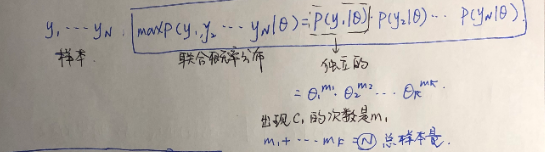 y₁ ⋯ y_N . max P(y₁ y₂ ⋯ y_N|θ) = P(y₁|θ) · P(y₂|θ) ⋯ P(y_N|θ)
样本. 联合概率分布 独立的
= θ₁^{m₁} · θ₂^{m₂} ⋯ θ_K^{m_K}.
出现 C₁ 的次数是 m₁
m₁ + ⋯ m_K = N 总样本量.